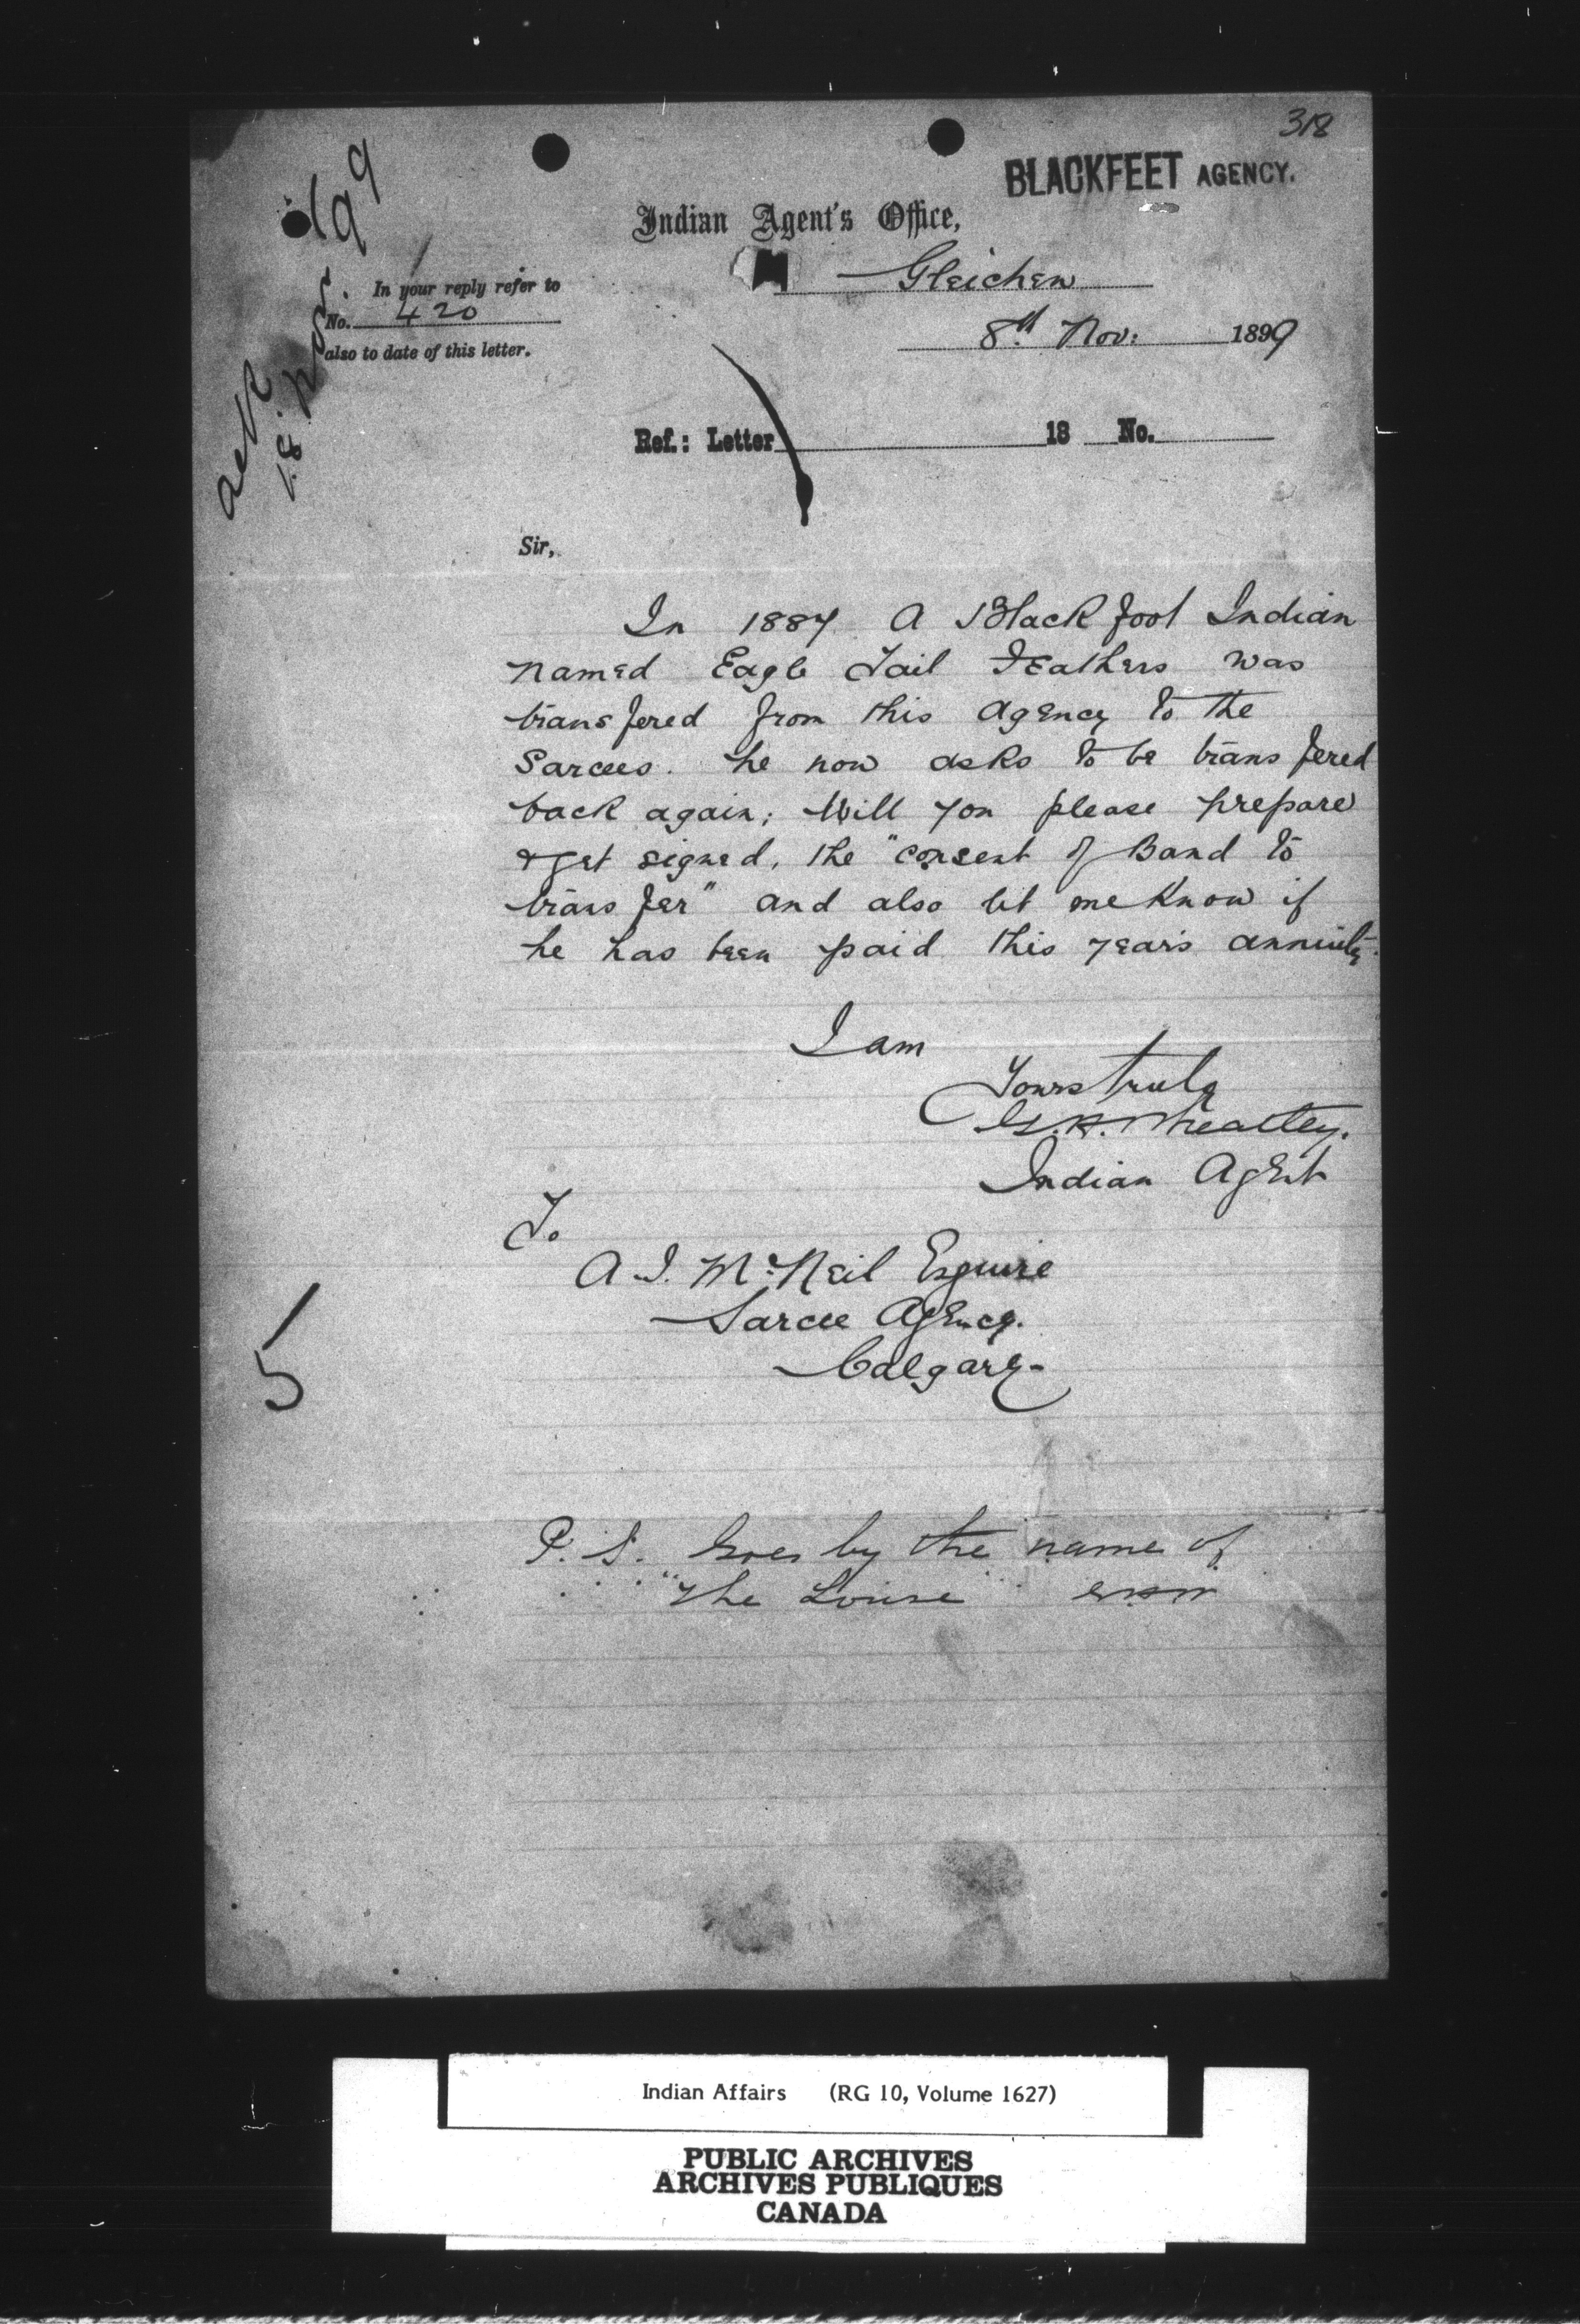 318
BLACKFEET AGENCY.
Indian Agent's Office,
Gleichen
In your reply refer to
No. 420
also to date of this letter.
8th Nov: 1899
Ref.: Letter 18 No.
Sir,
In 1887 A Blackfoot Indian
named Eagle Tail Feathers was
transfered from this Agency to the
Sarcees. he now asks to be transfered
back again; Will you please prepare
& get signed, the "consent of Band to
transfer" and also let me Know if
he has been paid this year's annuity.
I am
Yours truly
G.H. Wheatley.
Indian Agent
To
A. J. McNeil Esquire
Sarcee Agency.
Calgary-
5
P.S. Goes by the name of
"The Louse"
Indian Affairs (RG 10, Volume 1627)
PUBLIC ARCHIVES
ARCHIVES PUBLIQUES
CANADA